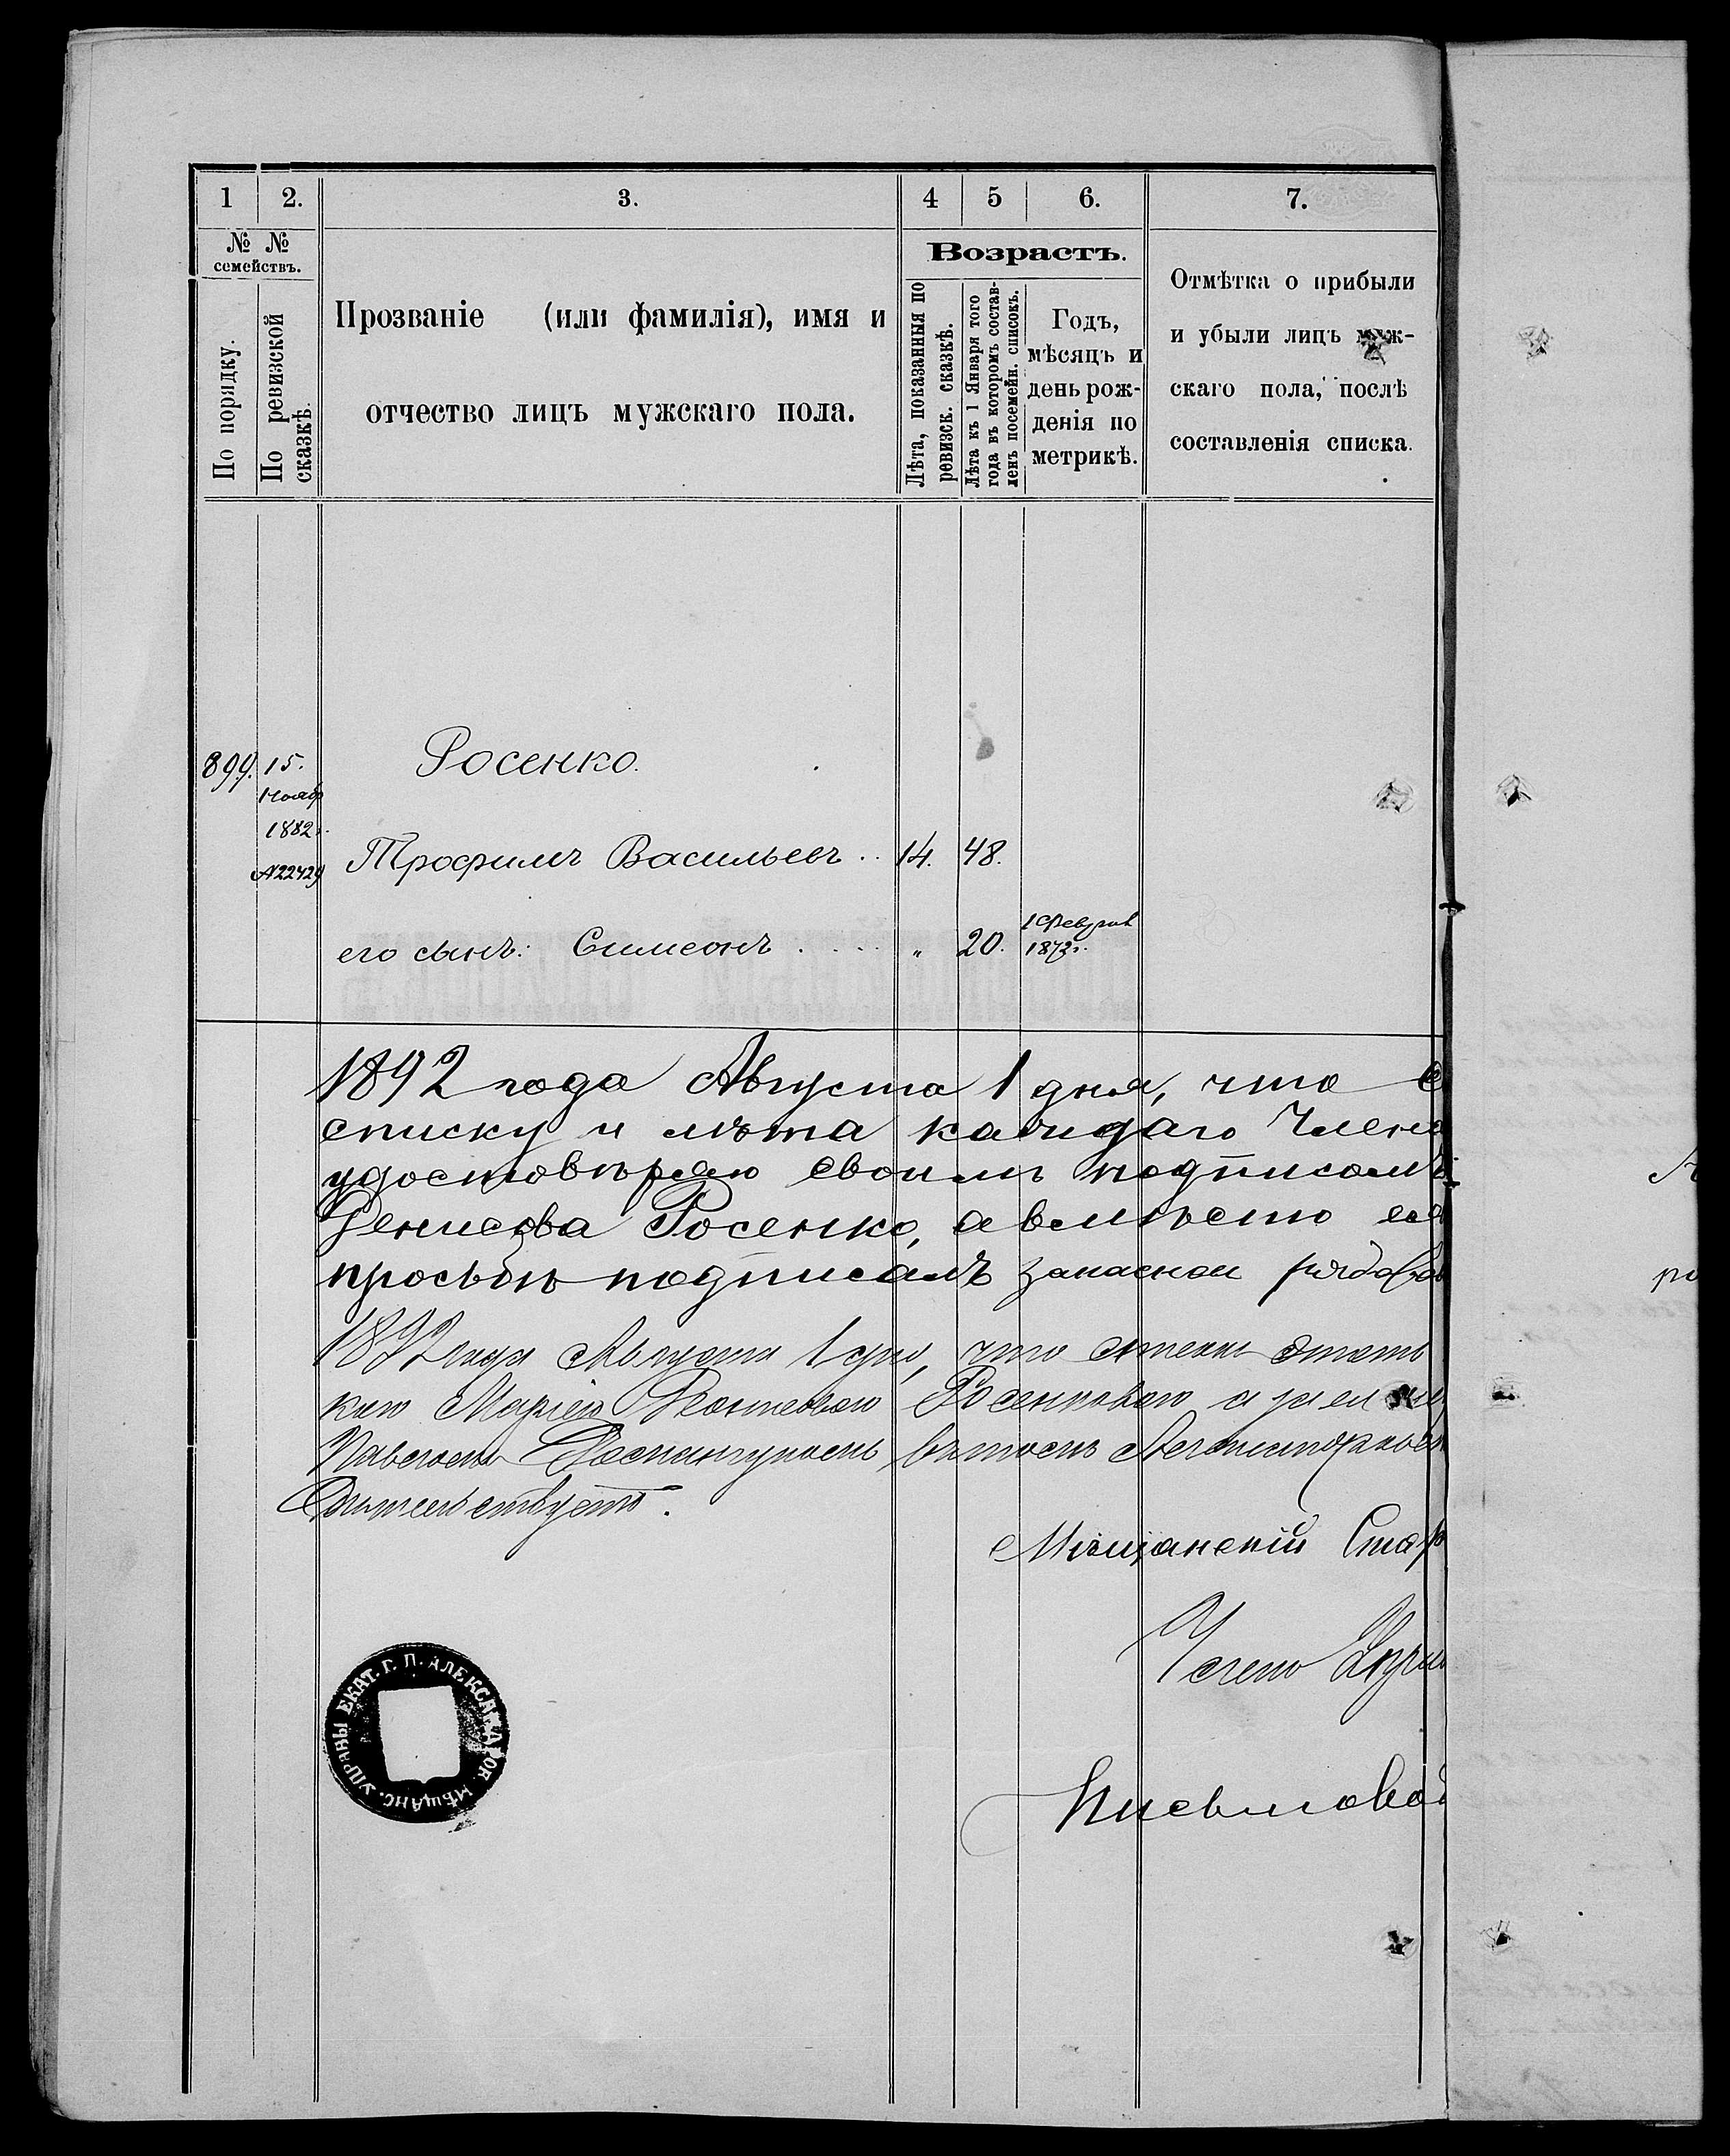 1 2. 3. 4 5 6. 7.
№ № семействъ.
По порядку.
По ревизской сказкѣ.
Прозваніе (или фамилія), имя и
отчество лицъ мужскаго пола.
Возрастъ.
Лѣта, показанныя по ревизск. сказкѣ.
Лѣта къ 1 Января того года въ которомъ составленъ посемейн. списокъ.
Годъ,
мѣсяцъ и
день рож-
денія по
метрикѣ.
Отмѣтка о прибыли
и убыли лицъ муж-
скаго пола, послѣ
составленія списка.
899. 15. Росенко.
Нояб
1882г.
№22429 Трофимъ Васильевъ .. 14. 48.
его сынъ: Симеонъ .... „ 20. 1 Феврал 1872г.
1892 года Августа 1 дня, что с
списку и лѣта каждаго Члена
удостовѣряю своимъ подписомъ
Денисова Росенко, а вмѣсто ея
просьбѣ подписалъ запасной рядовой
1892 года Августа 1 дня, что
Марією Росенковою
Мѣщанскій Стар
Члено
Письмовод
УПРАВЫ ЕКАТ. Г. П. АЛЕКСАНДРОВ. МѢЩАНС.